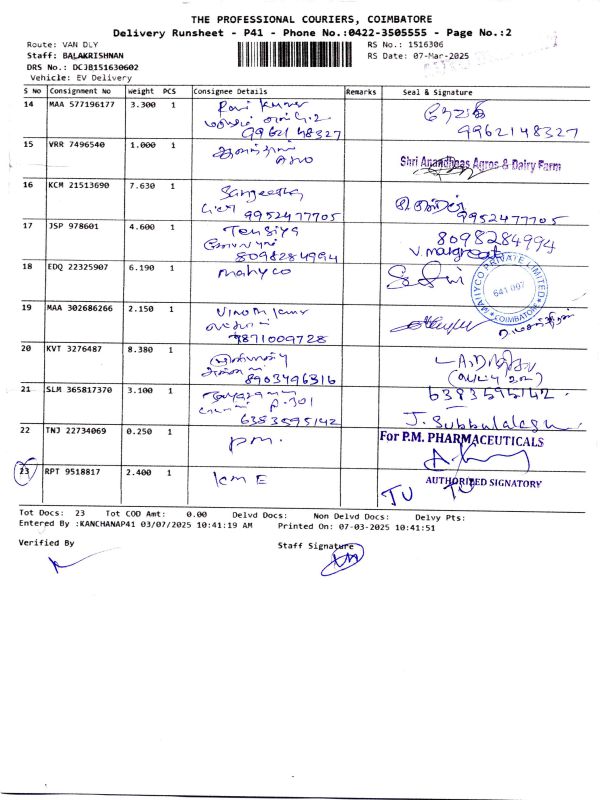 THE PROFESSIONAL COURIERS, COIMBATORE
Delivery Runsheet - P41 - Phone No.:0422-3505555 - Page No.:2
Route: VAN DLY
RS No.: 1516306
Staff: BALAKRISHNAN
RS Date: 07-Mar-2025
DRS No.: DCJB151630602
Vehicle: EV Delivery
S No Consignment No Weight PCS Consignee Details Remarks Seal & Signature
14 MAA 577196177 3.300 1 Ravi Kumar
9962148327 9962148327
15 VRR 7496540 1.000 1
Agro Shri Anandhaas Agros & Dairy Farm
16 KCM 21513690 7.630 1 Sangeetha
9952477705 9952477705
17 JSP 978601 4.600 1 Tensiya 8098284994
8098284994 V. Margreat
18 EDQ 22325907 6.190 1 Mahyco
MAHYCO PRIVATE LIMITED
641 007
COIMBATORE
19 MAA 302686266 2.150 1 Vinoth kumar
9871009728
20 KVT 3276487 8.380 1
8903496316
21 SLM 365817370 3.100 1 6383595142
P.301
6383595142 J. Subbulakshmi
22 TNJ 22734069 0.250 1 P.M. For P.M. PHARMACEUTICALS
23 RPT 9518817 2.400 1 KM E AUTHORIZED SIGNATORY
TU TU
Tot Docs: 23 Tot COD Amt: 0.00 Delvd Docs: Non Delvd Docs: Delvy Pts:
Entered By :KANCHANAP41 03/07/2025 10:41:19 AM Printed On: 07-03-2025 10:41:51
Verified By Staff Signature